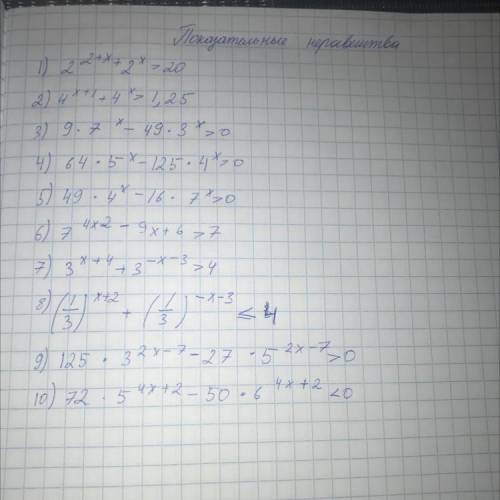 Показательные неравенства
1) 2^{2+x} + 2^x > 20
2) 4^{x+1} + 4^x > 1,25
3) 9 · 7^x - 49 · 3^x > 0
4) 64 · 5^x - 125 · 4^x > 0
5) 49 · 4^x - 16 · 7^x > 0
6) 7^{4x2 - 9x + 6} > 7
7) 3^{x+4} + 3^{-x-3} > 4
8) (1/3)^{x+2} + (1/3)^{-x-3} ≤ 4
9) 125 · 3^{2x-7} - 27 · 5^{2x-7} > 0
10) 72 · 5^{4x+2} - 50 · 6^{4x+2} < 0